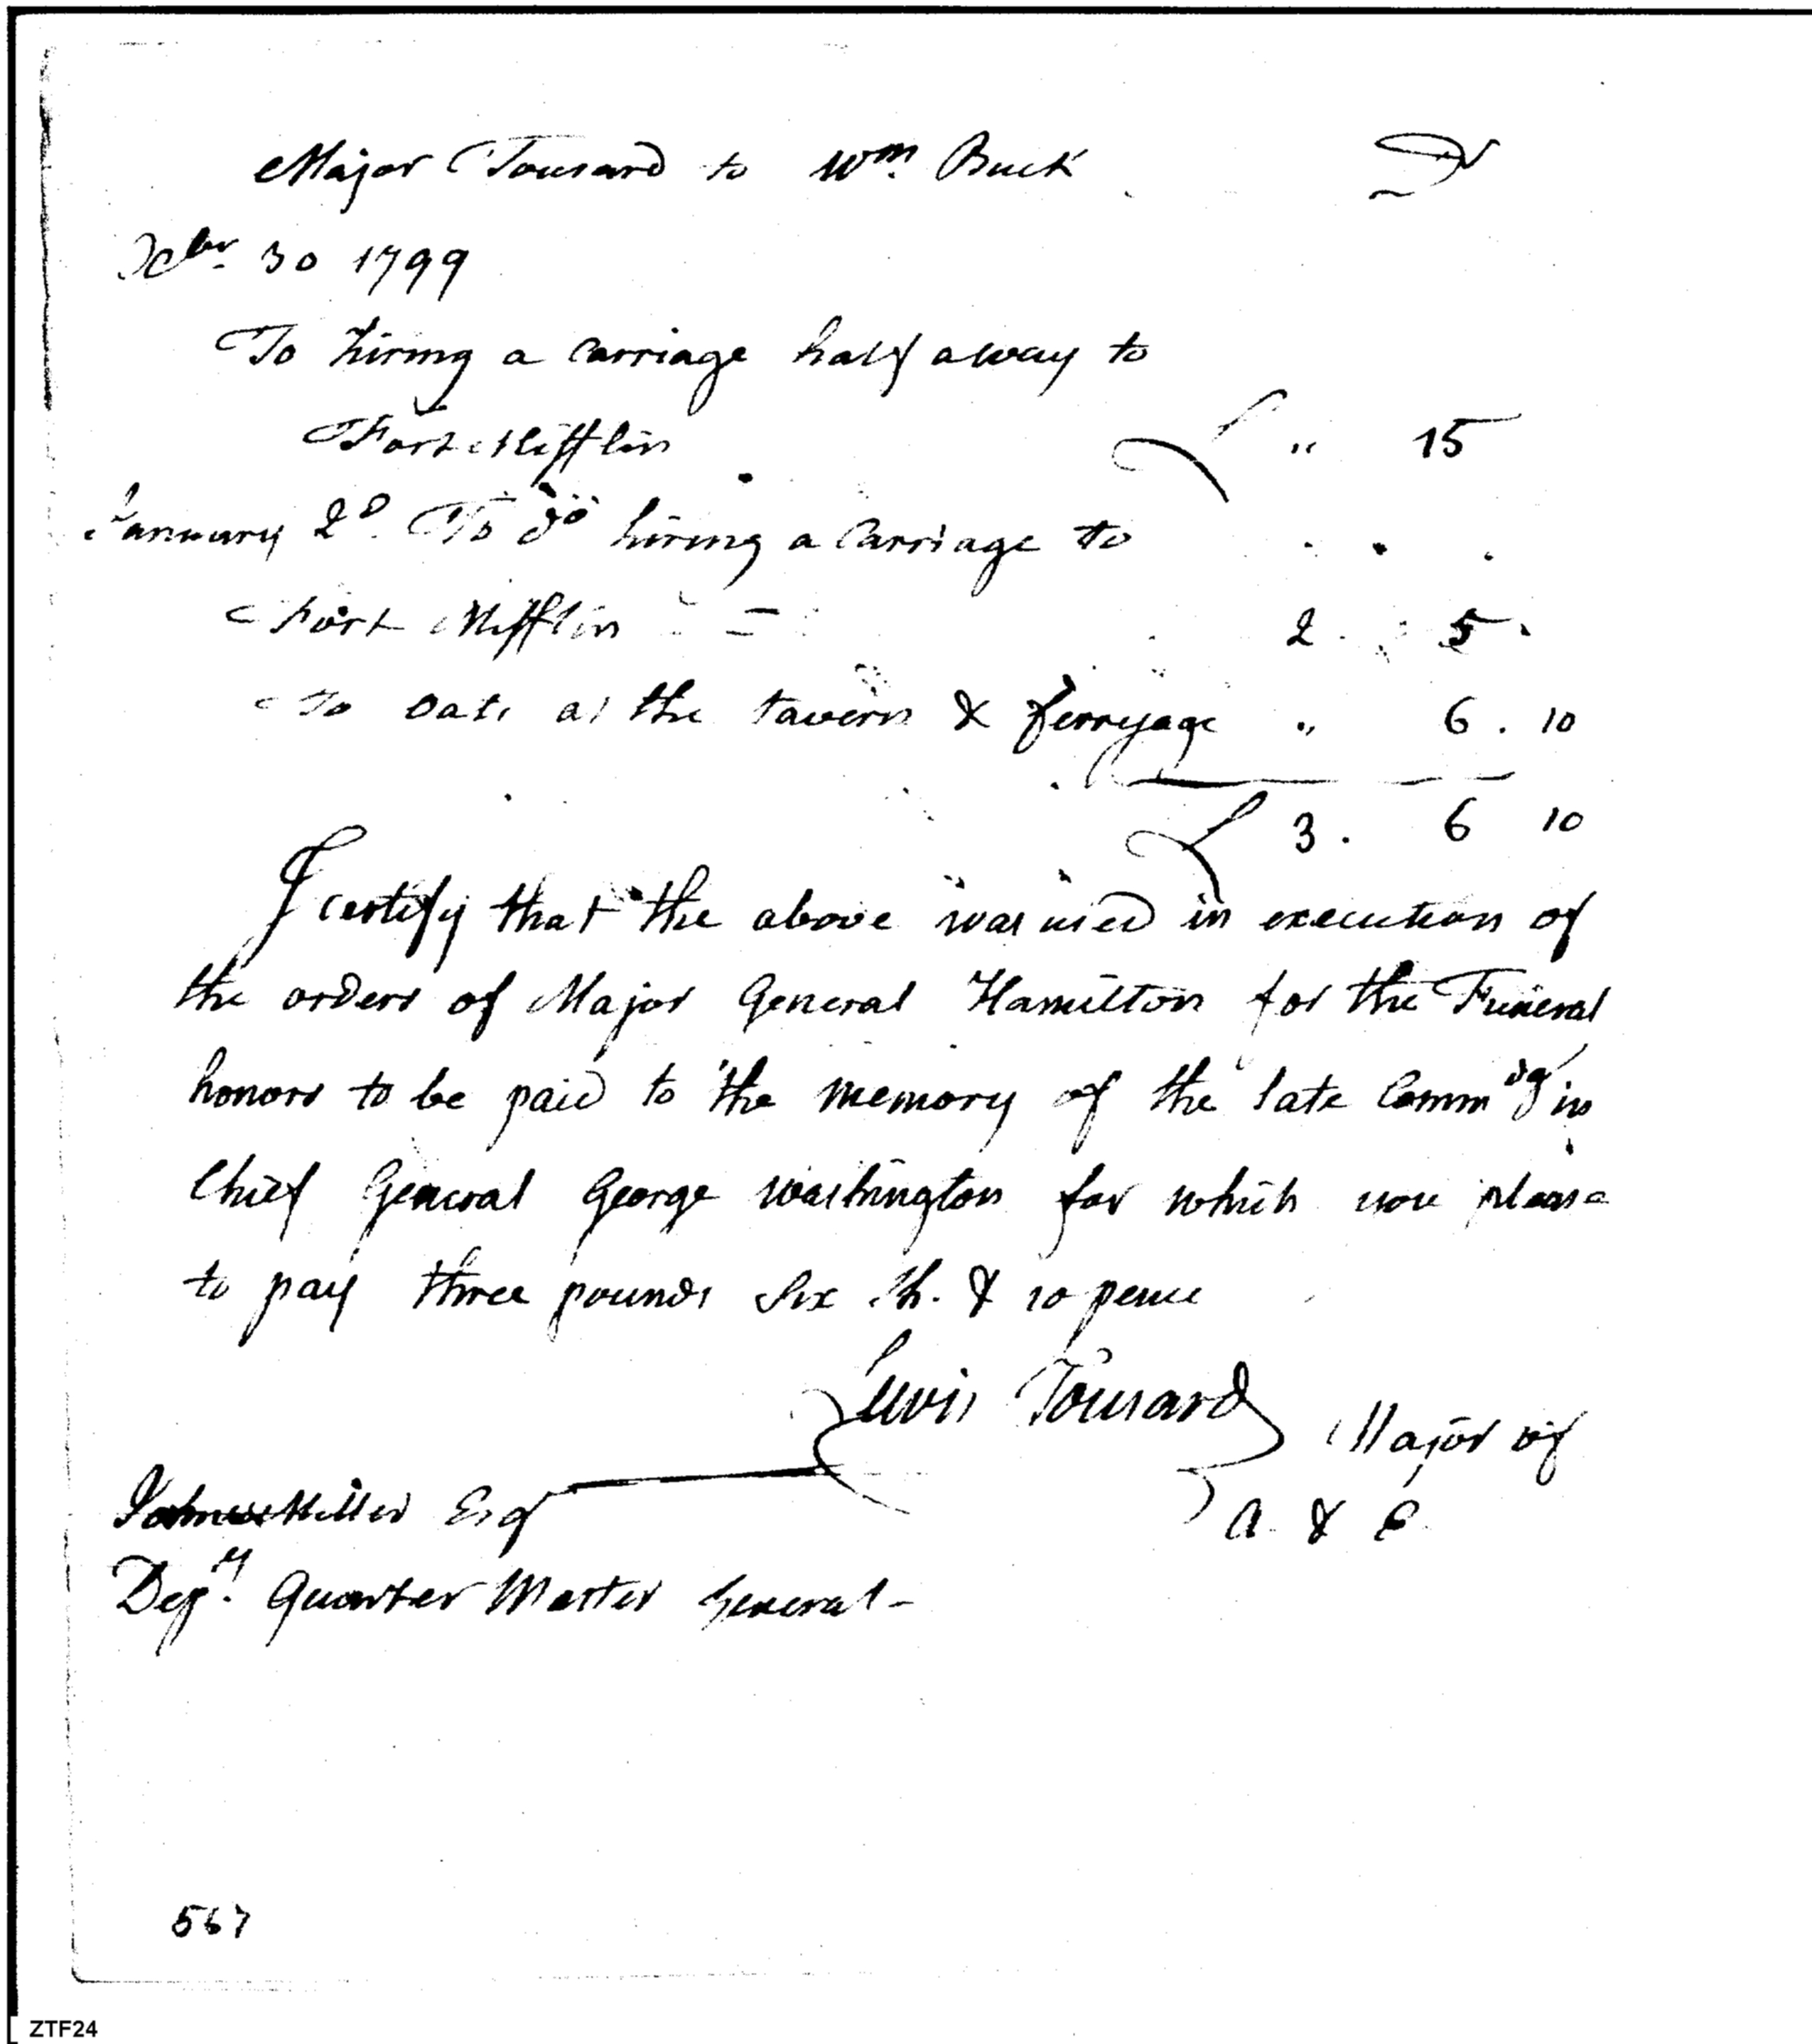 Major Tousard to Wm. Buck Dr
Xbr. 30 1799
To hiring a Carriage half away to
Fort Mifflin £ " 15
January 2d. To do hiring a Carriage to
Fort Mifflin - = 2 . 5 .
To Oats at the tavern & ferryage " 6 . 10
£ 3 . 6 10
I certify that the above was used in execution of
the orders of Major General Hamilton for the Funeral
honors to be paid to the memory of the late Commdg in
Chief General George Washington for which you please
to pay three pounds Six Sh. & 10 pence
Lewis Tousard Major of
A. & E.
John Miller Esqr
Depy. Quarter Master General -
567
ZTF24